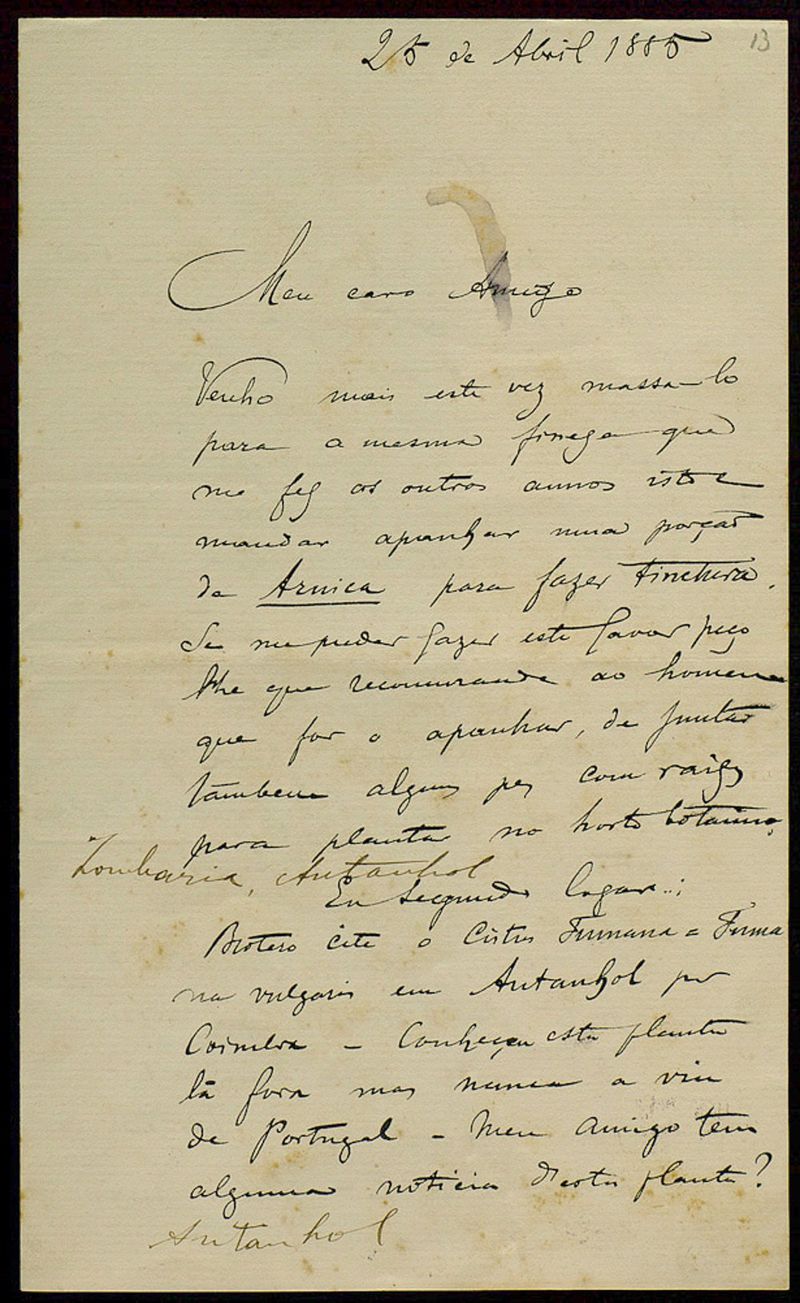 13
25 de Abril 1885
Meu caro Amigo
Venho mais esta vez massa-lo
para a mesma fineza que
me fez os outros annos isto e
mandar apanhar uma porção
de Arnica para fazer tinctura.
Se me puder fazer este favor peço
lhe que recommende ao homem
que for o apanhar, de juntar
tambem alguns pes com raizes
para plantar no horto botanico.
Zombaria, Antanhol
Em segundo logar..;
Brotero cite o Cistus Fumana = Fuma
na vulgaris em Antanhol por
Coimbra – Conheço esta planta
lá fora mas nunca a vi
de Portugal – Meu amigo tem
alguma noticia d'esta planta?
Antanhol